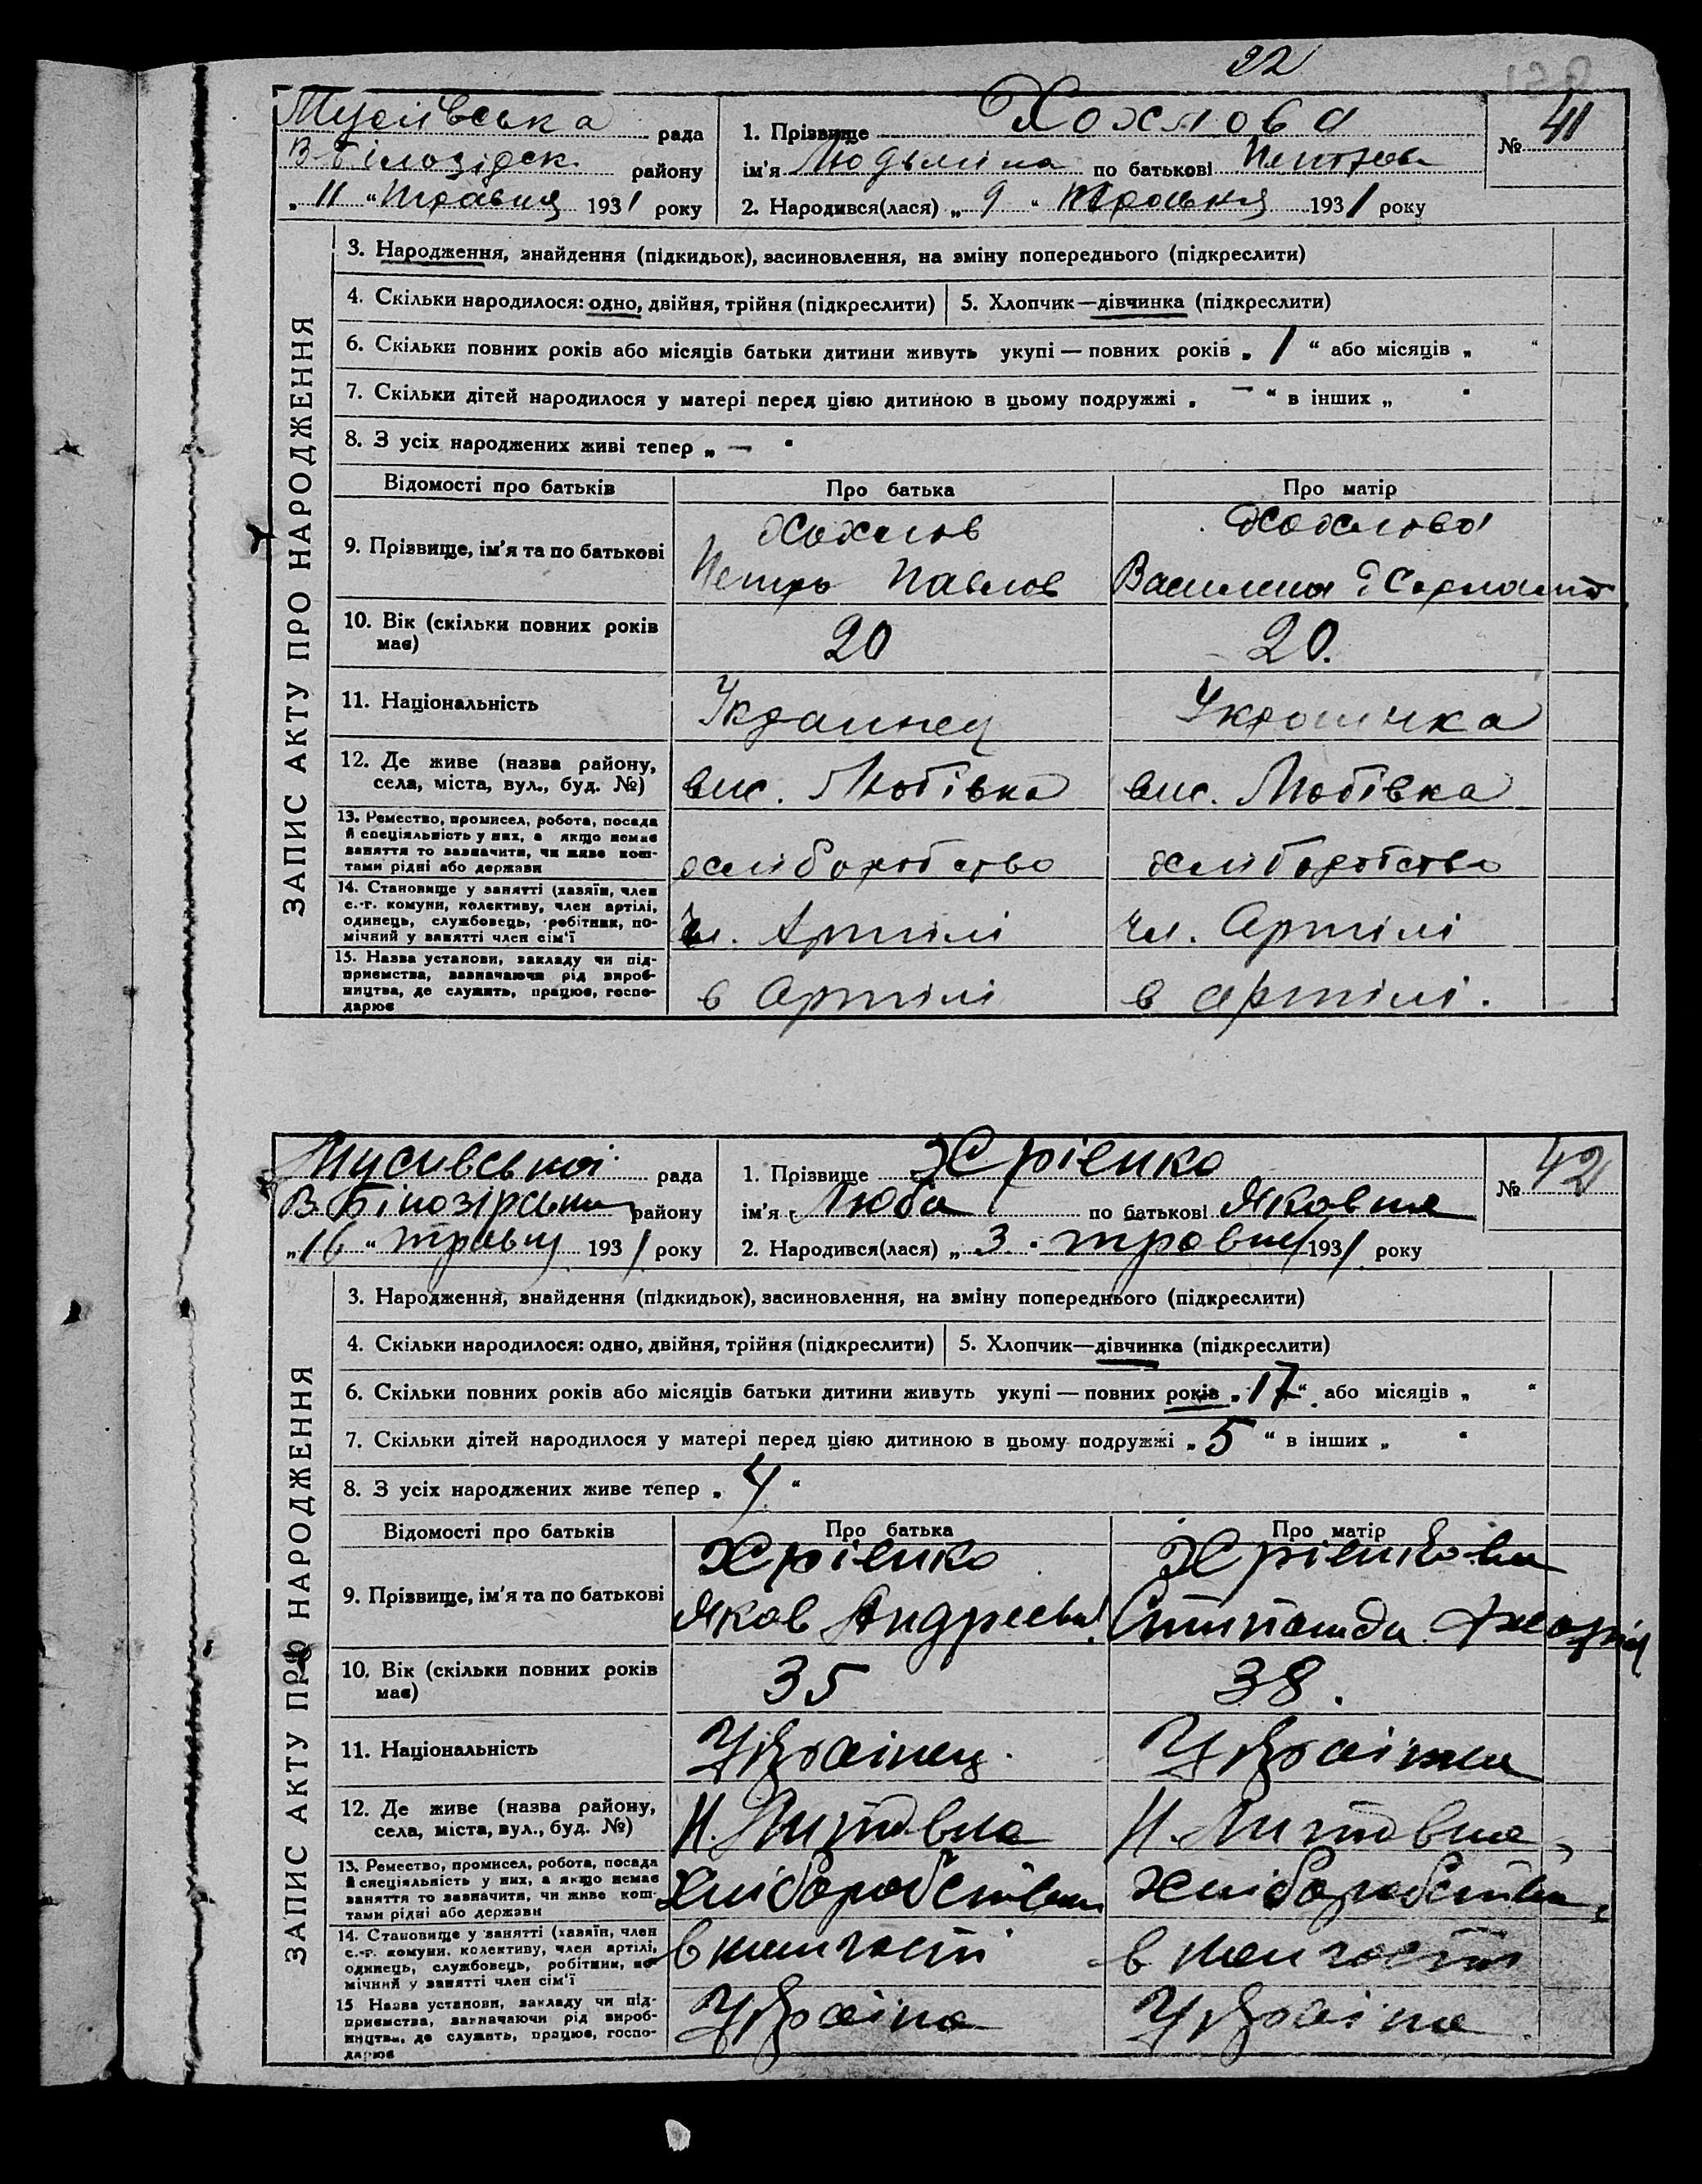 22
Мусіївська рада
В-Білозідск. району
„ 11 “ травня 1931 року
1. Прізвище Хохлова
ім'я Людьміла по батькові Петров
2. Народився(лася) „ 9 “ Травня 1931 року
№ 41
ЗАПИС АКТУ ПРО НАРОДЖЕННЯ
3. Народження, знайдення (підкидьок), засиновлення, на зміну попереднього (підкреслити)
4. Скільки народилося: одно, двійня, трійня (підкреслити) 5. Хлопчик—дівчинка (підкреслити)
6. Скільки повних років або місяців батьки дитини живуть укупі — повних років „ 1 “ або місяців „ “
7. Скільки дітей народилося у матері перед цією дитиною в цьому подружжі „ — “ в інших „ “
8. З усіх народжених живі тепер „ — “
Відомості про батьків Про батька Про матір
9. Прізвище, ім'я та по батькові
Хохлов Хохлова
Петро Павлов Василина
10. Вік (скільки повних років
має)
20 20.
11. Національність
Украинец Украинка
12. Де живе (назва району,
села, міста, вул., буд. №)
вис. Любівка вис. Любівка
13. Ремество, промисел, робота, посада
й спеціяльність у них, а якщо немає
заняття то зазначити, чи живе кош-
тами рідні або держави
хліборобство хліборобство
14. Становище у занятті (хазяїн, член
с.-г. комуни, колективу, член артілі,
одинець, службовець, робітник, по-
мічний у занятті член сім'ї
Чл. Артілі чл. Артілі
15. Назва установи, закладу чи під-
приємства, зазначаючи рід вироб-
ництва, де служить, працює, госпо-
дарює
в Артілі в артілі.
Мусивської рада
В. Білозірського району
„ 16 “ травн 1931 року
1. Прізвище Хрієнко
ім'я Люба по батькові Яковна
2. Народився(лася) „ 3 “ травня 1931 року
№ 42
ЗАПИС АКТУ ПРО НАРОДЖЕННЯ
3. Народження, знайдення (підкидьок), засиновлення, на зміну попереднього (підкреслити)
4. Скільки народилося: одно, двійня, трійня (підкреслити) 5. Хлопчик—дівчинка (підкреслити)
6. Скільки повних років або місяців батьки дитини живуть укупі — повних років „ 17 “ або місяців „ “
7. Скільки дітей народилося у матері перед цією дитиною в цьому подружжі „ 5 “ в інших „ “
8. З усіх народжених живе тепер „ 4 “
Відомості про батьків Про батька Про матір
9. Прізвище, ім'я та по батькові
Хрієнко Хрієнкова
Яков Андреевич
10. Вік (скільки повних років
має)
35 38.
11. Національність
Україінец Україінка
12. Де живе (назва району,
села, міста, вул., буд. №)
Н. Литовка Н. Литовка
13. Ремество, промисел, робота, посада
й спеціяльність у них, а якщо немає
заняття то зазначити, чи живе кош-
тами рідні або держави
хліборобство хліборобство
14. Становище у занятті (хазяїн, член
с.-г. комуни, колективу, член артілі,
одинець, службовець, робітник, по-
мічний у занятті член сім'ї
15 Назва установи, закладу чи під-
приємства, зазначаючи рід вироб-
ництва, де служить, працює, госпо-
дарює
Україна Україна